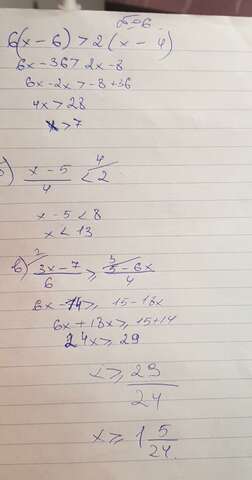 №6.
6(x-6)>2(x-4)
6x-36>2x-8
6x-2x>-8+36
4x>28
x>7
б) x-5/4 < 2 4
x-5<8
x<13
в) 2 3x-7/6 ⩾ 3 5-6x/4
6x-14⩾ 15-18x
6x+18x⩾ 15+14
24x⩾ 29
x⩾ 29/24
x⩾ 1 5/24